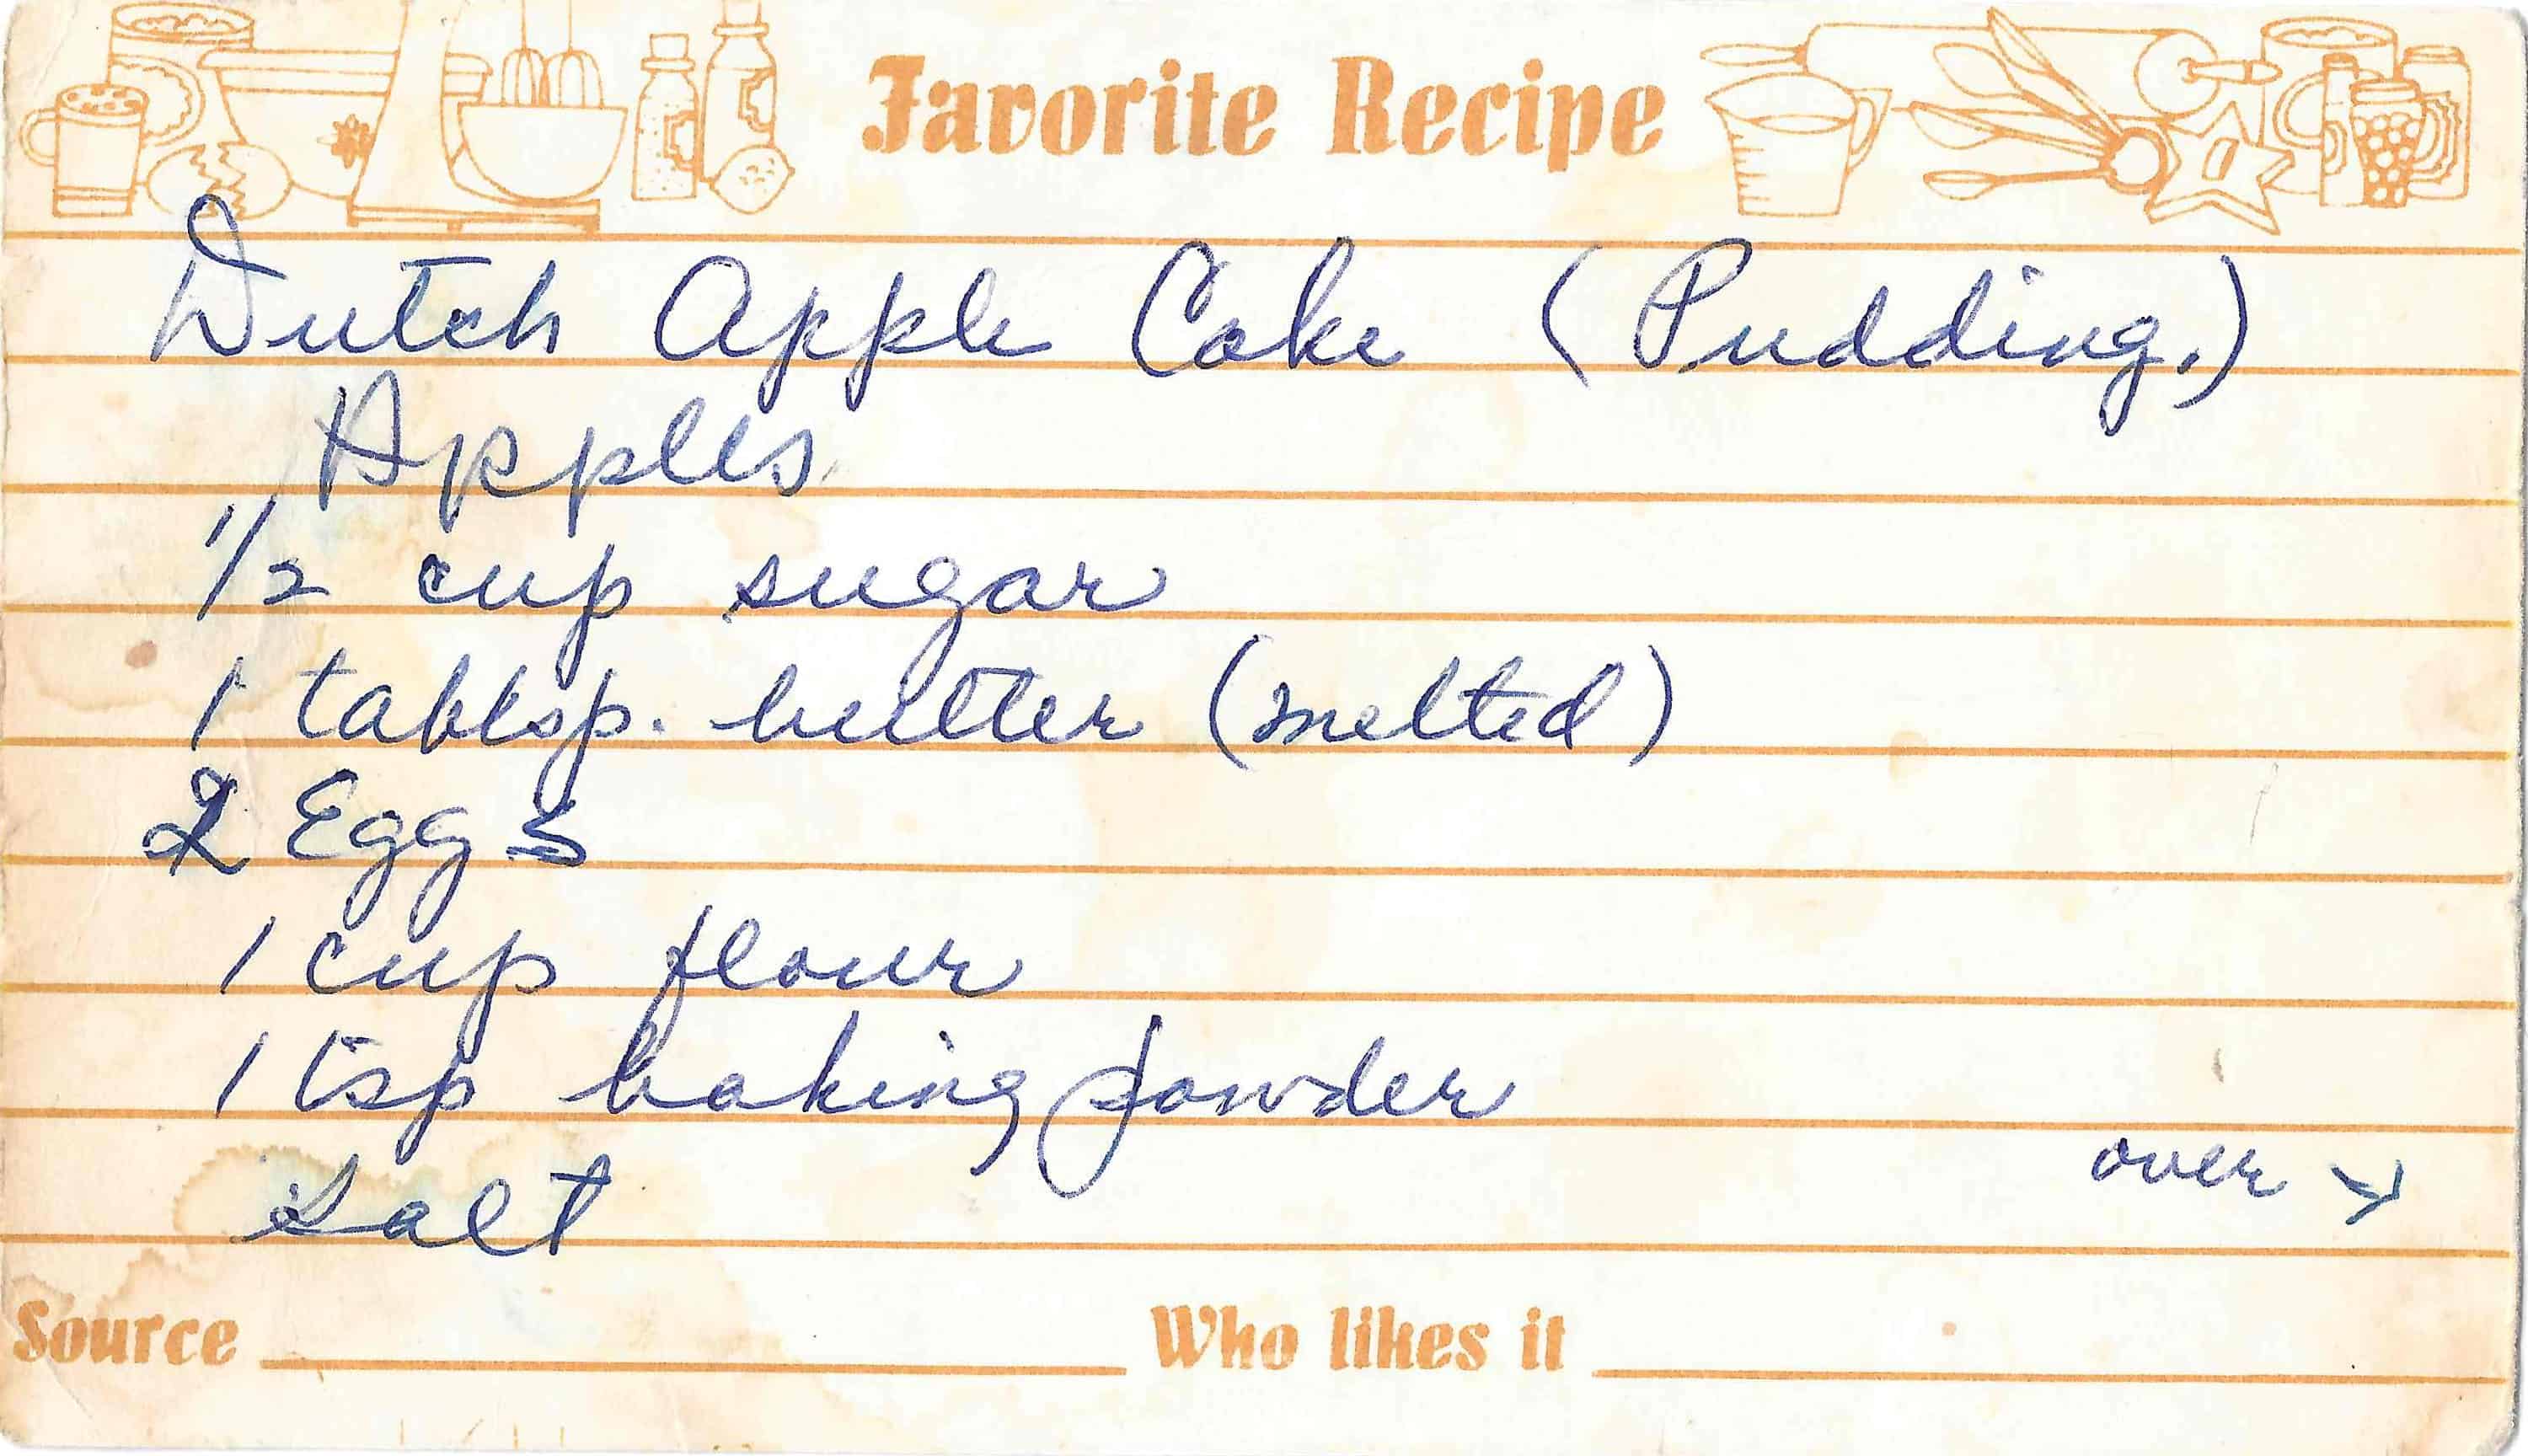 Favorite Recipe
Dutch Apple Cake (Pudding.)
Apples
1/2 cup sugar
1 tablsp. butter (melted)
2 Eggs
1 cup flour
1 tsp baking powder
over →
Salt
Source
Who likes it